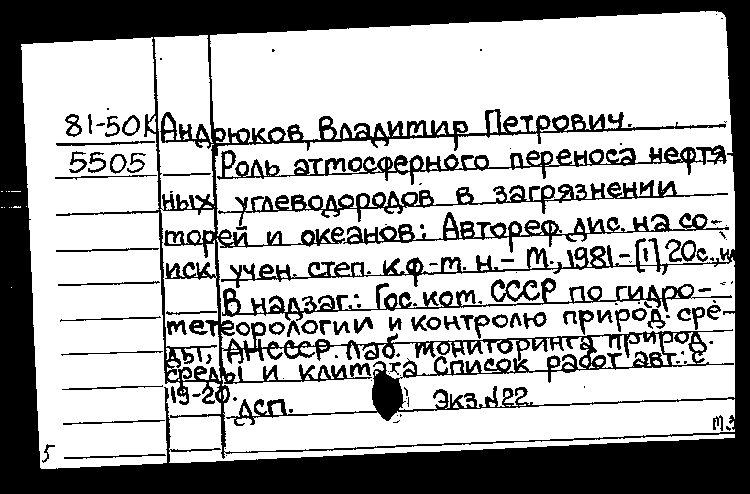 81-50К Андрюков, Владимир Петрович.
5505 Роль атмосферного переноса нефтя-
ных углеводородов в загрязнении
морей и океанов: Автореф. дис. на со-
иск. учен. степ. к.ф.-м. н. - М., 1981 - [1], 20с.,
В надзаг.: Гос. ком. СССР по гидро-
метеорологии и контролю природ. сре-
ды, АН СССР. Лаб. мониторинга природ.
среды и климата. Список работ авт.: с
19-20.
ДСП. Экз. №22.
5